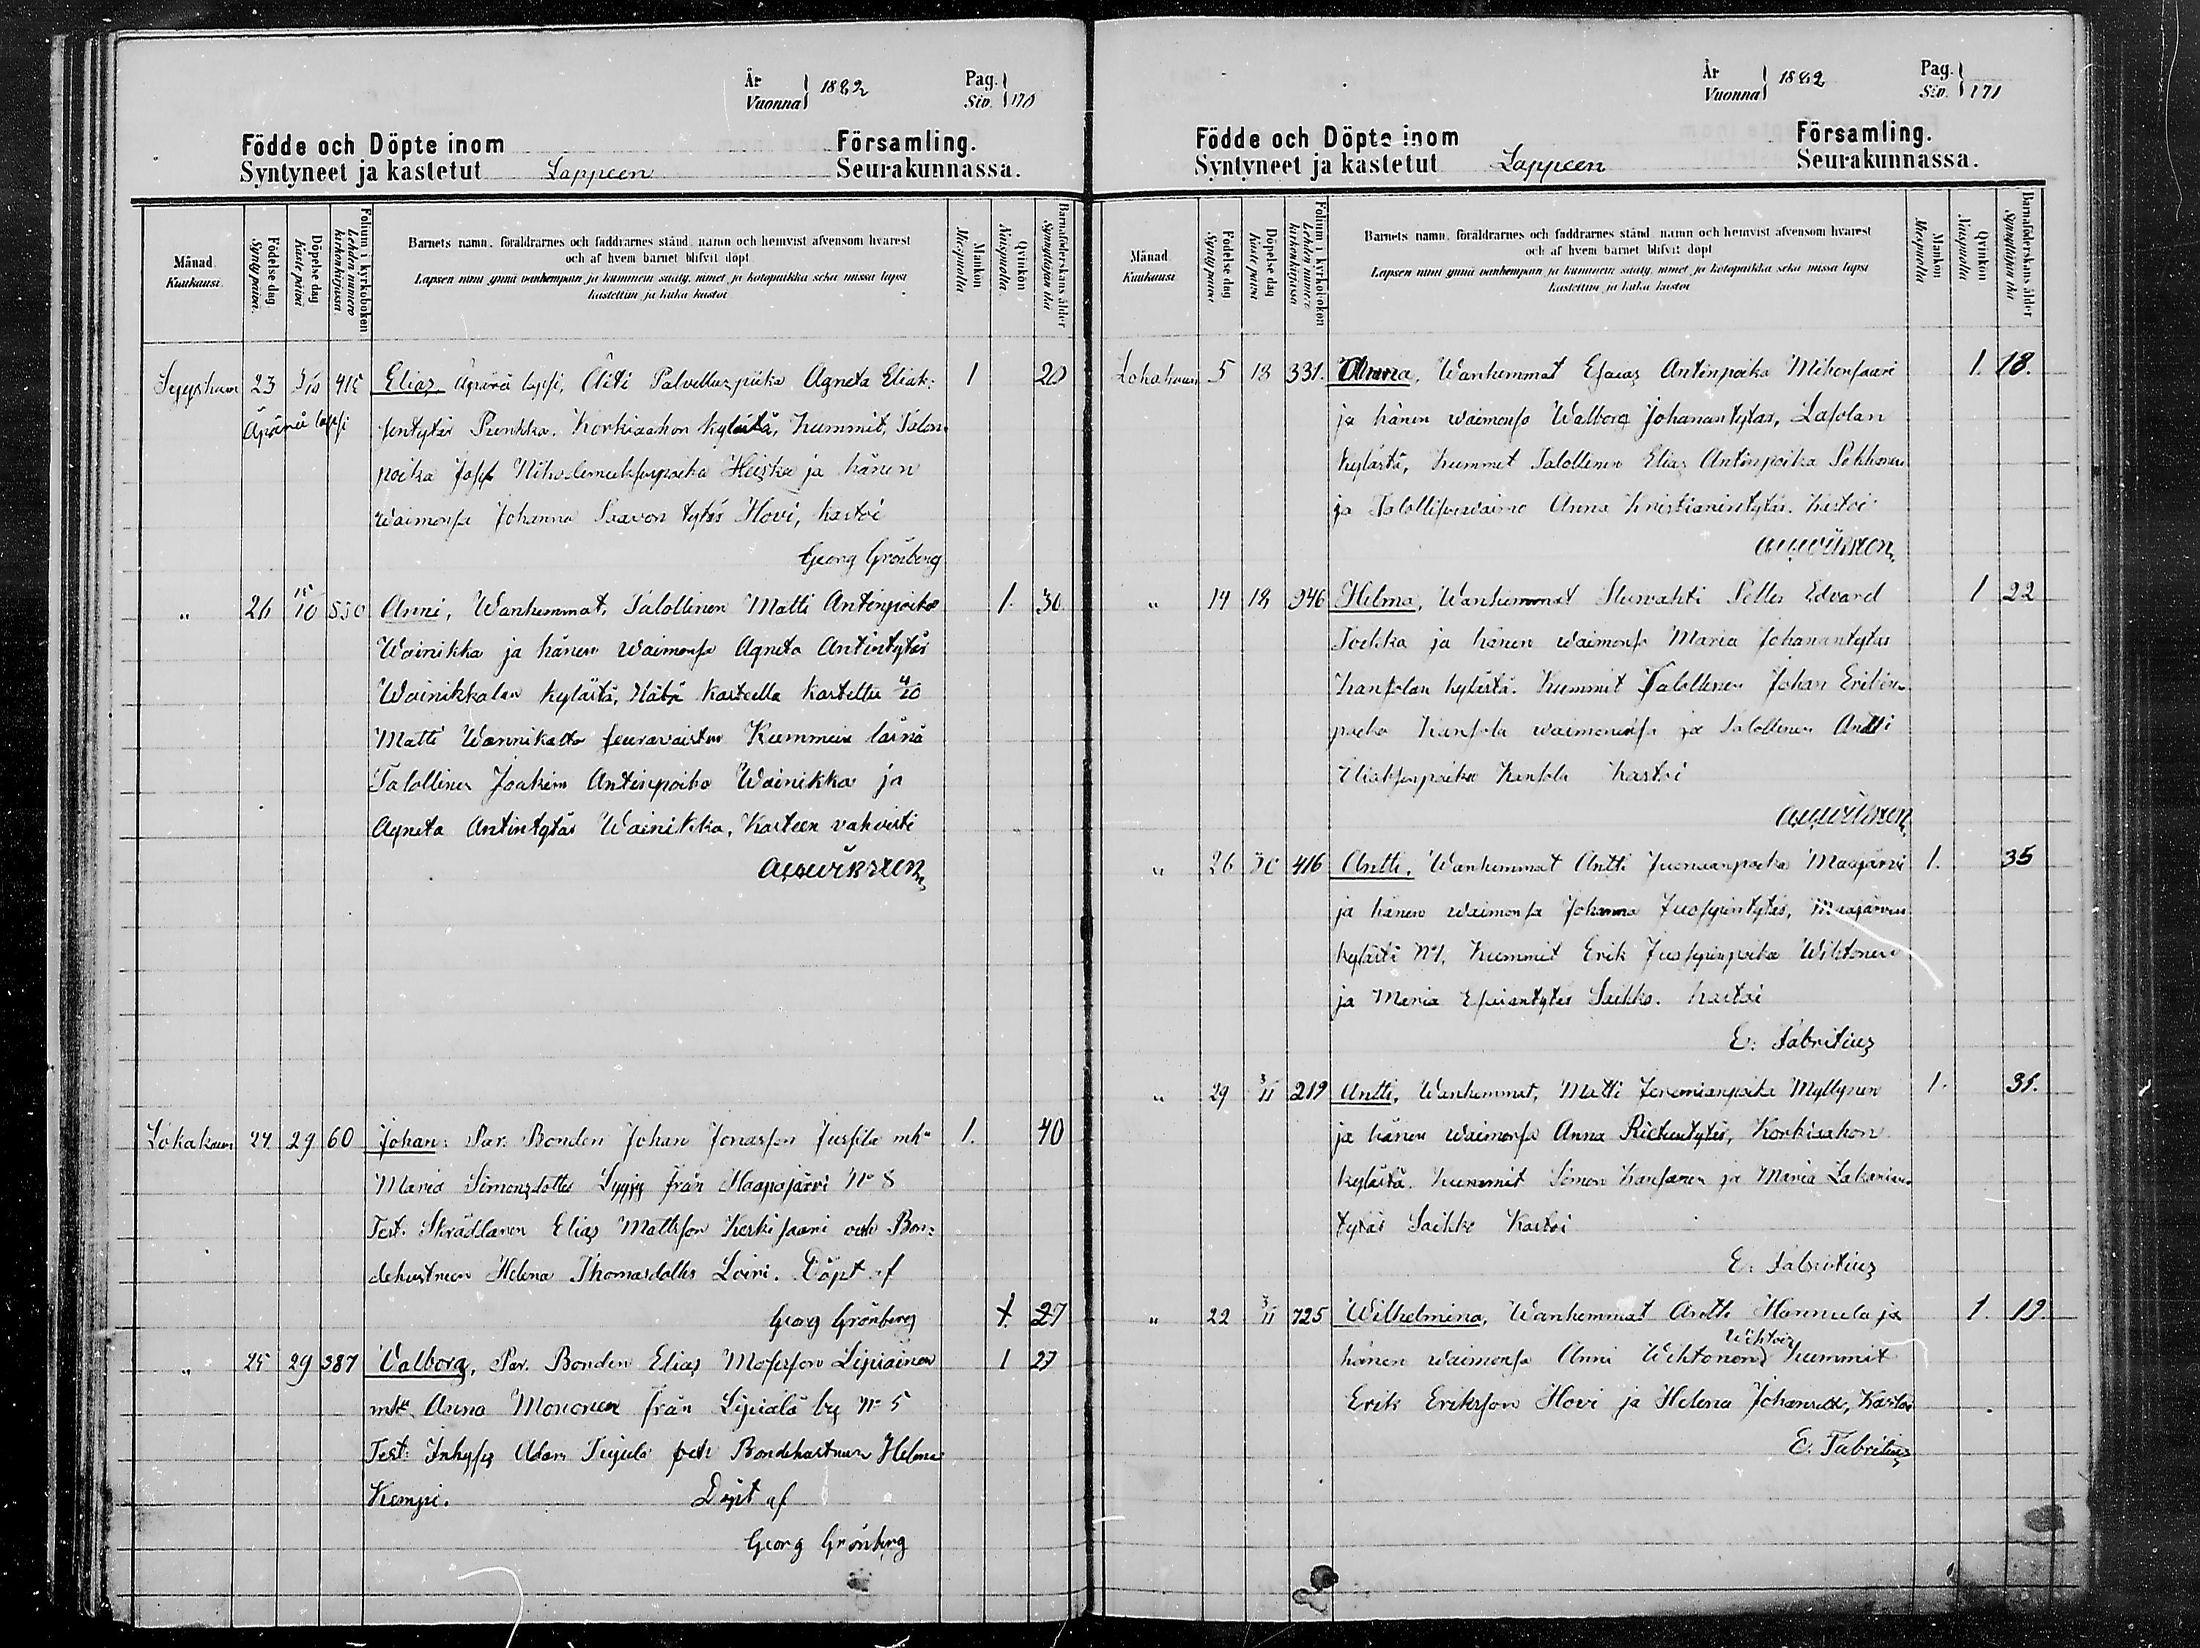 År
Vuonna 1882
Pag.
Siv. 170
Födde och Döpte inom Församling.
Syntyneet ja kastetut Lappeen Seurakunnassa.
Månad Kuukausi
Födelse dag Syntypäivä.
Döpelse dag Kastepäivä
Folium i kyrkoboken Lehden numero kirkonkirjassa
Barnets namn, föräldrarnes och faddrarnes stånd, namn och hemvist äfvensom hvarest
och af hvem barnet blifvit döpt
Lapsen nimi ynnä vanhempain ja kummein sääty, nimet ja kotopaikka sekä missä lapsi
kastettiin ja kuka kastoi
Mankön Miespuolia
Qvinkön Naispuolia
Barnaföderskans ålder Synnyttäjän ikä
Syyskuun 23 415 Elias Äpärä lapsi, Äiti Palvelluspiika Agneta Eliak= 1 20
Äpärä lapsi sentytär Penkka. Korkiaahon kylästä, Kummit, Talon
poika Josef Heiska ja hänen
waimonsa Johanna Paavon tytär Hovi, kastoi
Georg Grönberg
" 26 15/10 530 Anni, Wanhemmat, Talollinen Matti Antinpoika 1. 30
Wainikka ja hänen waimonsa Agneta Antintytär
Wainikkalan kylästä, Hätä kasteella kastettu
Matti Wannikatta seuravaisten Kummein läsnä
Talollinen Joakim Antinpoika Wainikka ja
Agneta Antintytär Wainikka, Kasteen vahvisti
Lokakuun 24 29 60 Johan: Par. Bonden Johan Jonasson Jussila mh: 1. 40
Maria Simonsdotter Syyjy från Haapajärvi No 8
Test: Skräddaren Elias Mattsson Keskisaari och Bon=
dehustrun Helena Thomasdotter Loiri. Döpt af
Georg Grönberg 1. 27
" 25 29 387 Valborg, Par. Bonden Elias Mosesson Lipiäinen 1 27
mh: Anna Mononen från Lipiälä by No 5
Test: Inhyses Adam Tujula och Bondehustrun Helena
Kemppi. Döpt af
Georg Grönberg
År
Vuonna 1882
Pag.
Siv. 171
Födde och Döpte inom Församling.
Syntyneet ja kastetut Lappeen Seurakunnassa.
Månad Kuukausi
Födelse dag Syntypäivä
Döpelse dag Kastepäivä
Folium i kyrkoboken Lehden numero kirkonkirjassa
Barnets namn, föräldrarnes och faddrarnes stånd, namn och hemvist äfvensom hvarest
och af hvem barnet blifvit döpt
Lapsen nimi ynnä vanhempain ja kummein sääty, nimet ja kotopaikka sekä missä lapsi
kastettiin ja kuka kastoi
Mankön Miespuolia
Qvinkön Naispuolia
Barnaföderskans ålder Synnyttäjän ikä
Lokakuun 5 18 331. Anna, Wanhemmat Esaias Antinpoika Mikonsaari 1. 18.
ja hänen waimonsa Walborg Johanantytär, Lasolan
kylästä, Kummit Talollinen Elias Antinpoika Pekkonen
ja Talollisenwaimo Anna Kristianintytär. Kastoi
" 14 18 246 Helma, Wanhemmat Edvard 1 22
Toikka ja hänen waimonsa Maria Johanantytär
Kansolan kylästä. Kummit Talollinen Johan Erikin=
poika Kansola waimoninsa ja Talollinen Antti
Eliaksenpoika Kansola kastoi
" 26 30 416 Antti, Wanhemmat Antti Juonaanpoika Maajärvi 1. 35
ja hänen waimonsa Johanna Juosepintytär, Maajärven
kylästä No 1, Kummit Erik Juosepinpoika Wihtonen
ja Maria Esaiantytär Saikko. kastoi
E. Fabritius
" 29 3/11 219 Antti, Wanhemmat, Matti Jeremianpoika Myllynen 1. 31.
ja hänen waimonsa Anna tytär, Korkiaahon
kylästä. Kummit Simon Kansanen ja Maria Zakarian
tytär Saikko Kastoi
E. Fabritius
" 22 3/11 725 Wilhelmina, Wanhemmat Antti Hannula ja 1. 19.
hänen waimonsa Anni Wihtonen Kummit
Erik Eriksson Hovi ja Helena Kastoi
E. Fabritius